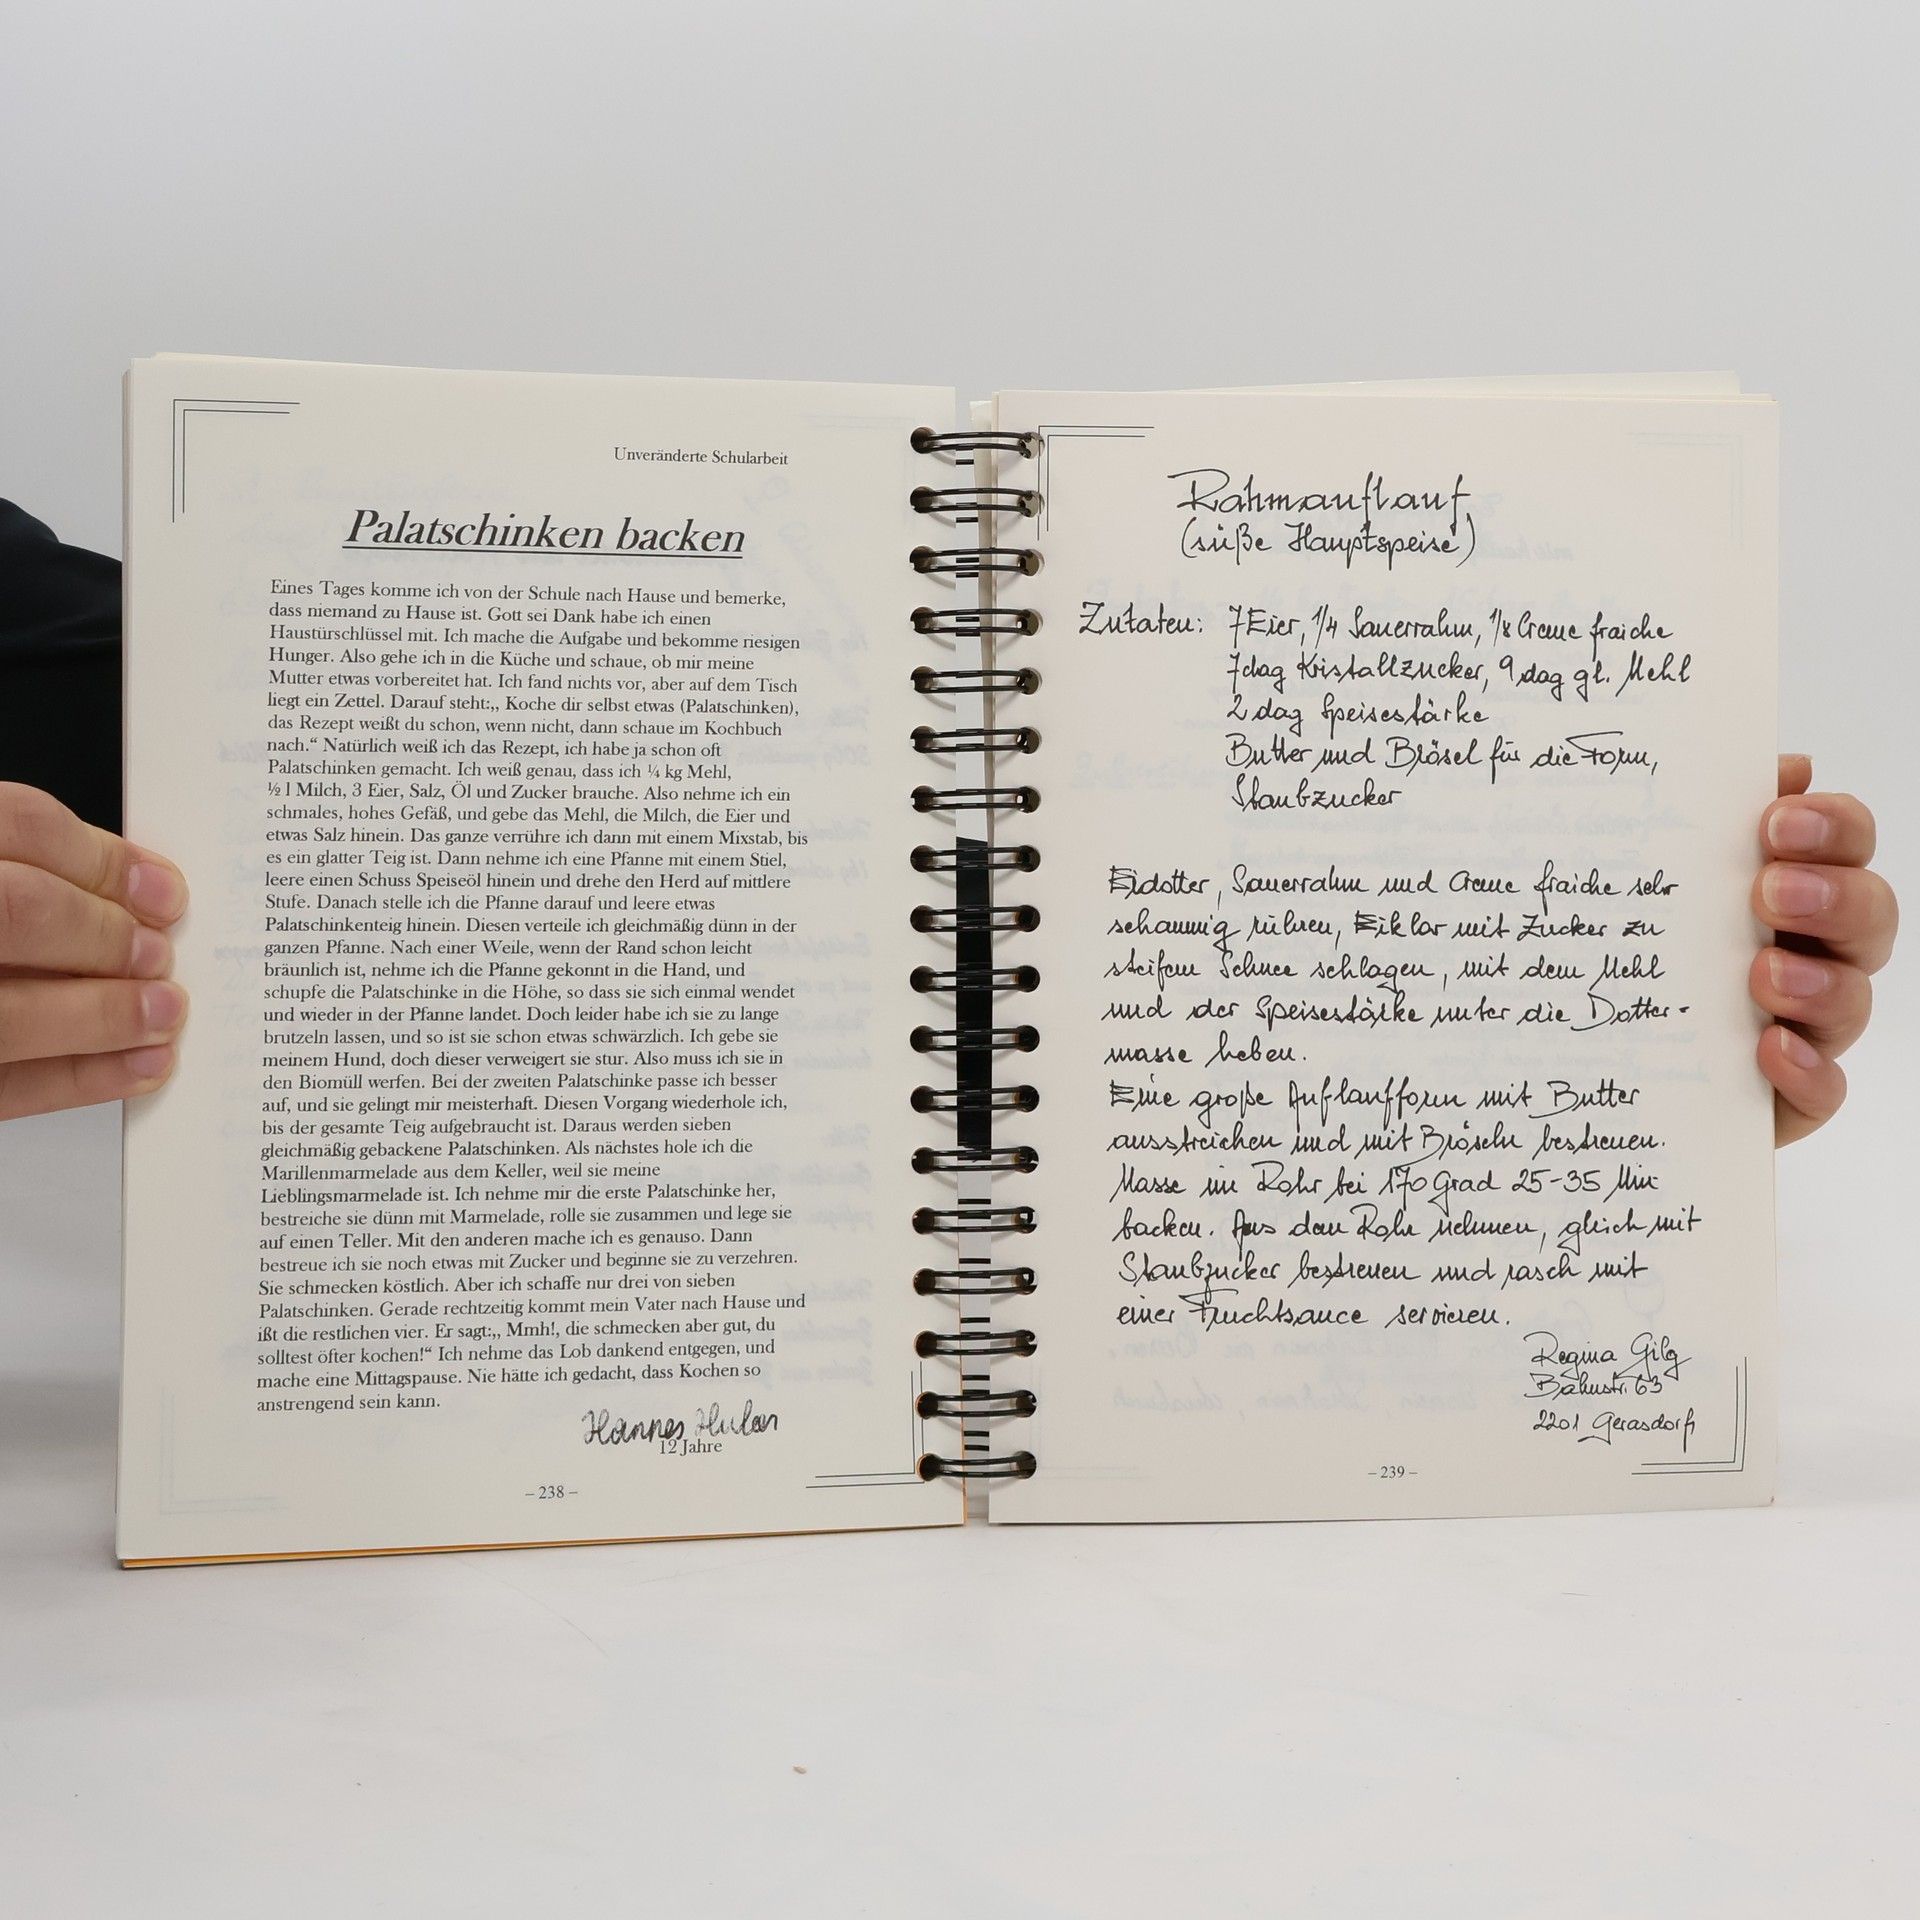 Unveränderte Schularbeit
Palatschinken backen
Eines Tages komme ich von der Schule nach Hause und bemerke,
dass niemand zu Hause ist. Gott sei Dank habe ich einen
Haustürschlüssel mit. Ich mache die Aufgabe und bekomme riesigen
Hunger. Also gehe ich in die Küche und schaue, ob mir meine
Mutter etwas vorbereitet hat. Ich fand nichts vor, aber auf dem Tisch
liegt ein Zettel. Darauf steht:„ Koche dir selbst etwas (Palatschinken),
das Rezept weißt du schon, wenn nicht, dann schaue im Kochbuch
nach.“ Natürlich weiß ich das Rezept, ich habe ja schon oft
Palatschinken gemacht. Ich weiß genau, dass ich ¼ kg Mehl,
½ l Milch, 3 Eier, Salz, Öl und Zucker brauche. Also nehme ich ein
schmales, hohes Gefäß, und gebe das Mehl, die Milch, die Eier und
etwas Salz hinein. Das ganze verrühre ich dann mit einem Mixstab, bis
es ein glatter Teig ist. Dann nehme ich eine Pfanne mit einem Stiel,
leere einen Schuss Speiseöl hinein und drehe den Herd auf mittlere
Stufe. Danach stelle ich die Pfanne darauf und leere etwas
Palatschinkenteig hinein. Diesen verteile ich gleichmäßig dünn in der
ganzen Pfanne. Nach einer Weile, wenn der Rand schon leicht
bräunlich ist, nehme ich die Pfanne gekonnt in die Hand, und
schupfe die Palatschinke in die Höhe, so dass sie sich einmal wendet
und wieder in der Pfanne landet. Doch leider habe ich sie zu lange
brutzeln lassen, und so ist sie schon etwas schwärzlich. Ich gebe sie
meinem Hund, doch dieser verweigert sie stur. Also muss ich sie in
den Biomüll werfen. Bei der zweiten Palatschinke passe ich besser
auf, und sie gelingt mir meisterhaft. Diesen Vorgang wiederhole ich,
bis der gesamte Teig aufgebraucht ist. Daraus werden sieben
gleichmäßig gebackene Palatschinken. Als nächstes hole ich die
Marillenmarmelade aus dem Keller, weil sie meine
Lieblingsmarmelade ist. Ich nehme mir die erste Palatschinke her,
bestreiche sie dünn mit Marmelade, rolle sie zusammen und lege sie
auf einen Teller. Mit den anderen mache ich es genauso. Dann
bestreue ich sie noch etwas mit Zucker und beginne sie zu verzehren.
Sie schmecken köstlich. Aber ich schaffe nur drei von sieben
Palatschinken. Gerade rechtzeitig kommt mein Vater nach Hause und
ißt die restlichen vier. Er sagt:„ Mmh!, die schmecken aber gut, du
solltest öfter kochen!“ Ich nehme das Lob dankend entgegen, und
mache eine Mittagspause. Nie hätte ich gedacht, dass Kochen so
anstrengend sein kann.
Hannes Huber
12 Jahre
– 238 –
Rahmauflauf
(süße Hauptspeise)
Zutaten: 7 Eier, 1/4 Sauerrahm, 1/8 Creme fraiche
7 dag Kristallzucker, 9 dag gl. Mehl
2 dag Speisestärke
Butter und Brösel für die Form,
Staubzucker
Eidotter, Sauerrahm und Creme fraiche sehr
schaumig rühren, Eiklar mit Zucker zu
steifem Schnee schlagen, mit dem Mehl
und der Speisestärke unter die Dotter-
masse heben.
Eine große Auflaufform mit Butter
ausstreichen und mit Bröseln bestreuen.
Masse im Rohr bei 170 Grad 25-35 Min
backen. Aus dem Rohr nehmen, gleich mit
Staubzucker bestreuen und rasch mit
einer Fruchtsauce servieren.
Regina Gilg
Bahnstr. 63
2201 Gerasdorf
– 239 –